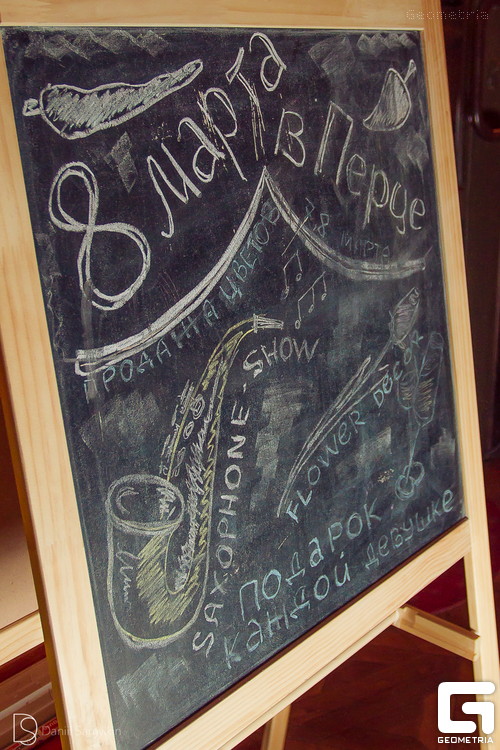 Geometria
8 Марта в Перце
ПРОДАЖА ЦВЕТОВ
8 марта
SAXOPHONE-SHOW
FLOWER DECOR
ПОДАРОК
КАЖДОЙ девушке
GEOMETRIA